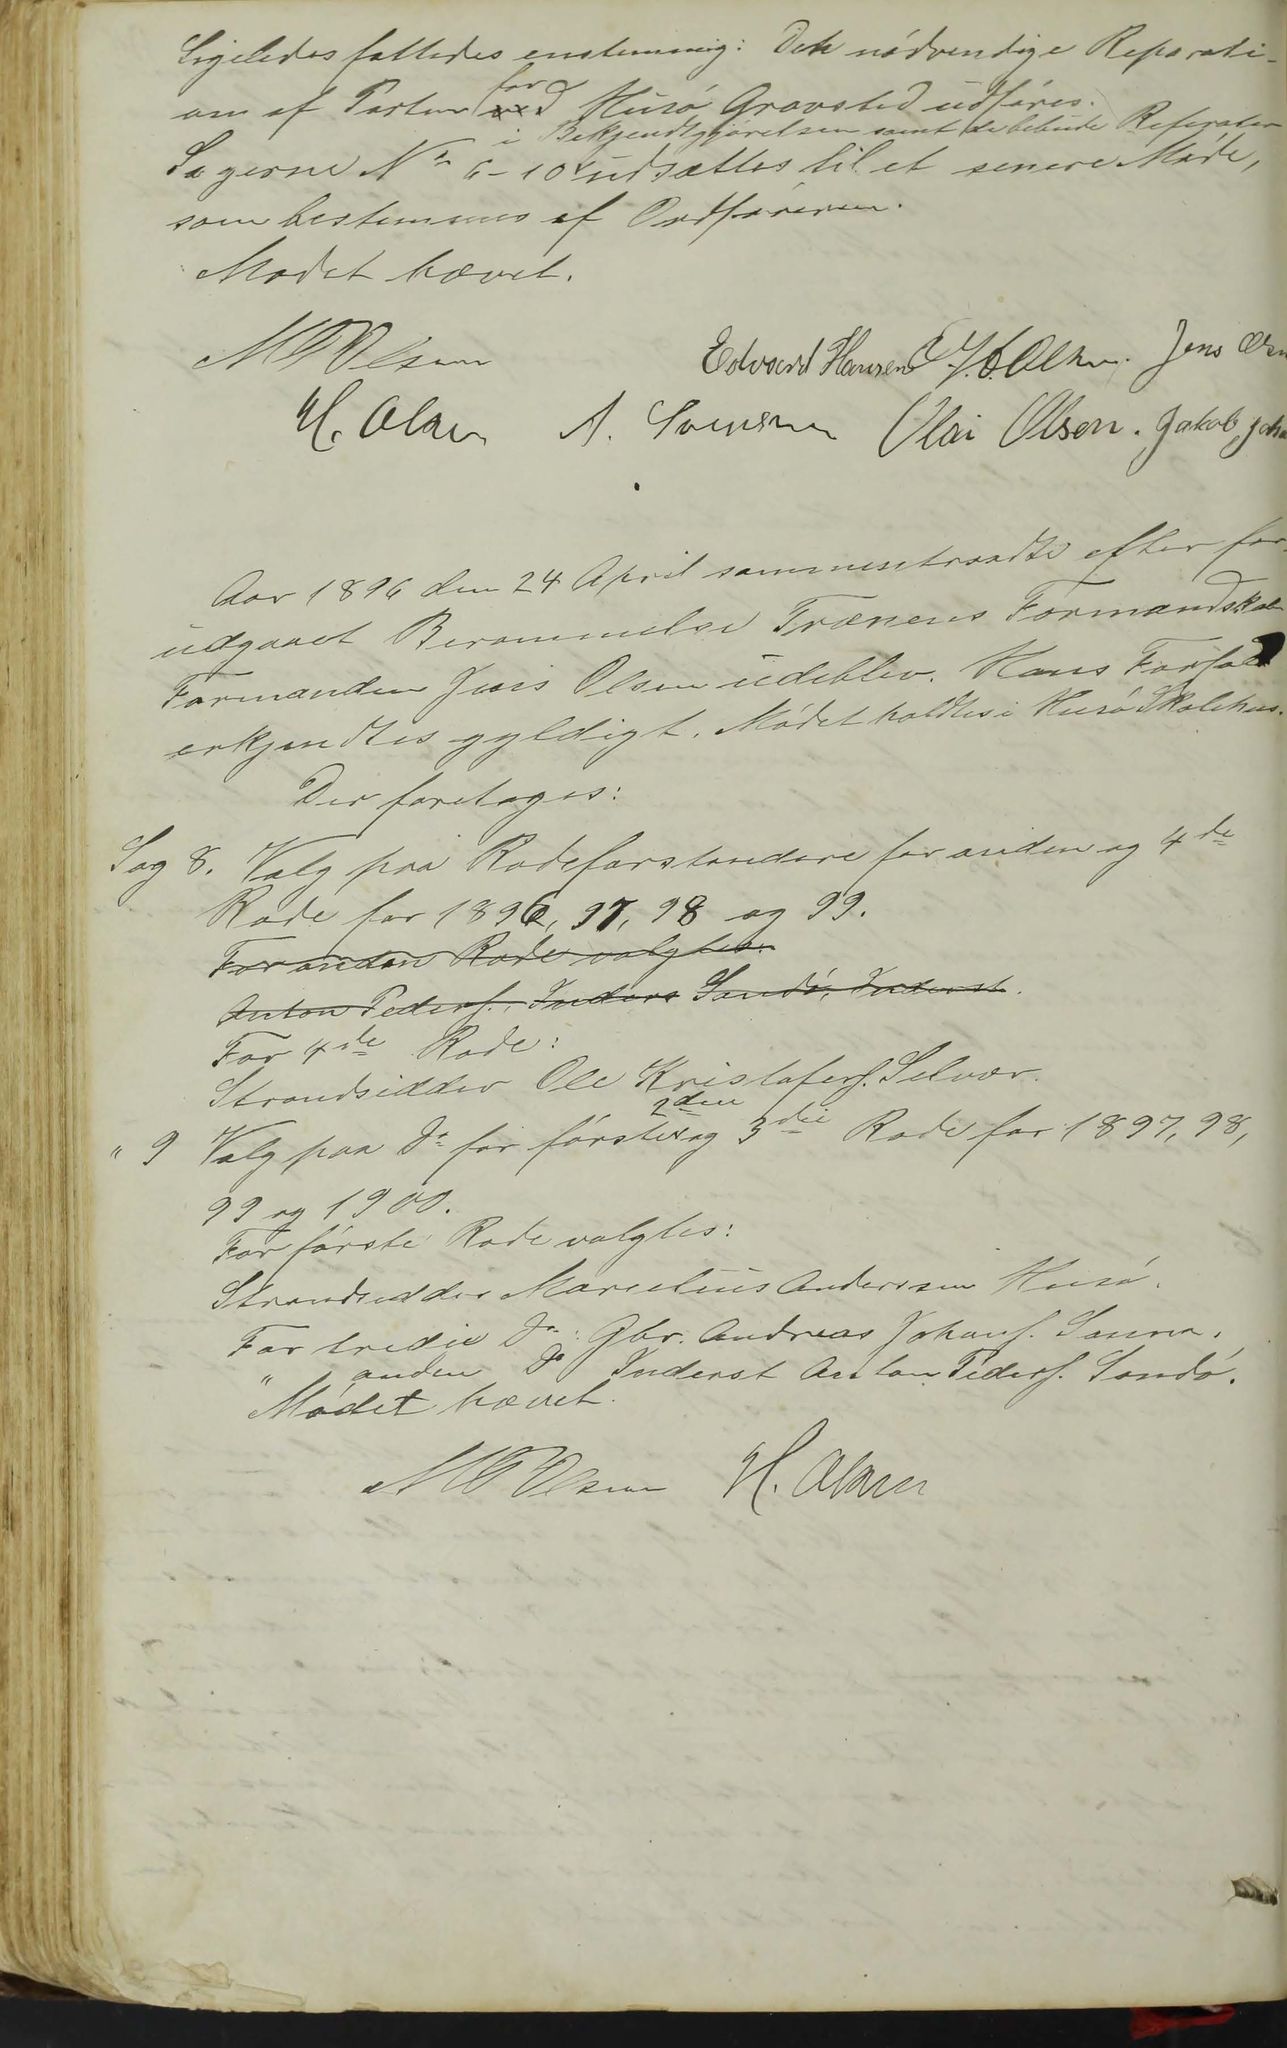 Ligeledes fattedes enstemmig: Den nødvendige Reparati-
on af Porten for Husø Gravsted udføres.
i Bekjendtgjørelsen samt de bebude Referater
Sagerne No 6-10 udsættes til et senere Møde,
som bestemmes af Ordføreren.
Mødet hævet.
M Olsen Edvard Hansen Olsen. Jens Olsen
H. Olsen A. Svensen Olai Olsen. Jakob Joha
Aar 1896 den 24 April sammentraadte efter for-
udgaaet Berammelse Trænens Formandskab
Formanden Jens Olsen udeblev. Hans Forfald
erkjendtes gyldigt. Mødet holdtes i Husø Skolehus.
Der foretoges:
Sag 8. Valg paa Rodeforstandere for anden og 4de
Rode for 1896, 97, 98 og 99.
For anden Rode valgtes:
Anton Peders. Inders Sandø, Inderst.
For 4de Rode:
Strandsidder Ole Kristofers. Selvær.
" 9 Valg paa Do for første, 2den og 3die Rode for 1897, 98,
99 og 1900.
For første Rode valgtes:
Strandsidder Marselius Andersen Husø.
For tredie Do: Gbr. Andreas Johans. Sanna.
" anden Do Inderst Anton Peders. Sandø.
Mødet hævet.
M Olsen H. Olsen